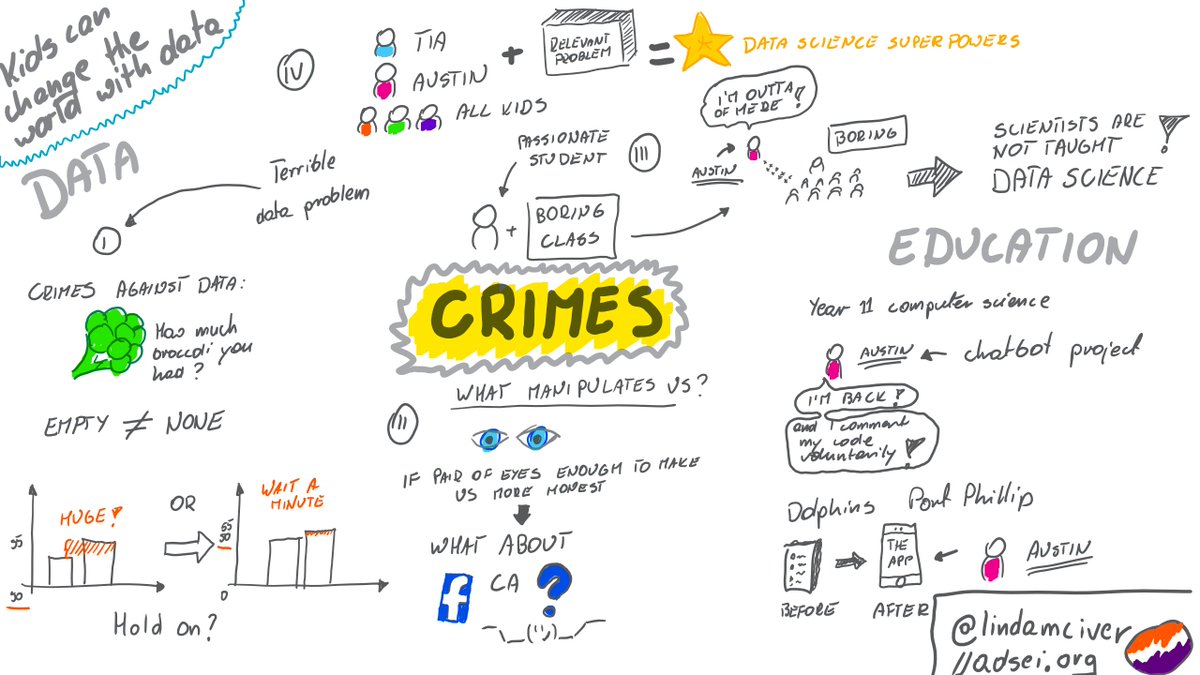 Kids can
change the
world with data
DATA
IV
TIA
AUSTIN
ALL KIDS
+
RELEVANT
PROBLEM
=
DATA SCIENCE SUPERPOWERS
Terrible
data problem
I
CRIMES AGAINST DATA:
How much
broccoli you
had?
EMPTY ≠ NONE
HUGE!
55
50
OR
WAIT A
MINUTE
55
50
0
Hold on?
PASSIONATE
STUDENT
III
+
BORING
CLASS
I'M OUTTA
OF HERE!
AUSTIN
BORING
SCIENTISTS ARE
NOT TAUGHT
DATA SCIENCE
!
CRIMES
WHAT MANIPULATES US?
III
IF PAIR OF EYES ENOUGH TO MAKE
US MORE HONEST
WHAT ABOUT
f CA ?
¯\_(ツ)_/¯
EDUCATION
Year 11 computer science
AUSTIN ← chatbot project
I'M BACK!
and I comment
my code
voluntarily!
Dolphins Port Phillip
BEFORE
THE
APP
AFTER
AUSTIN
@lindamciver
//adsei.org